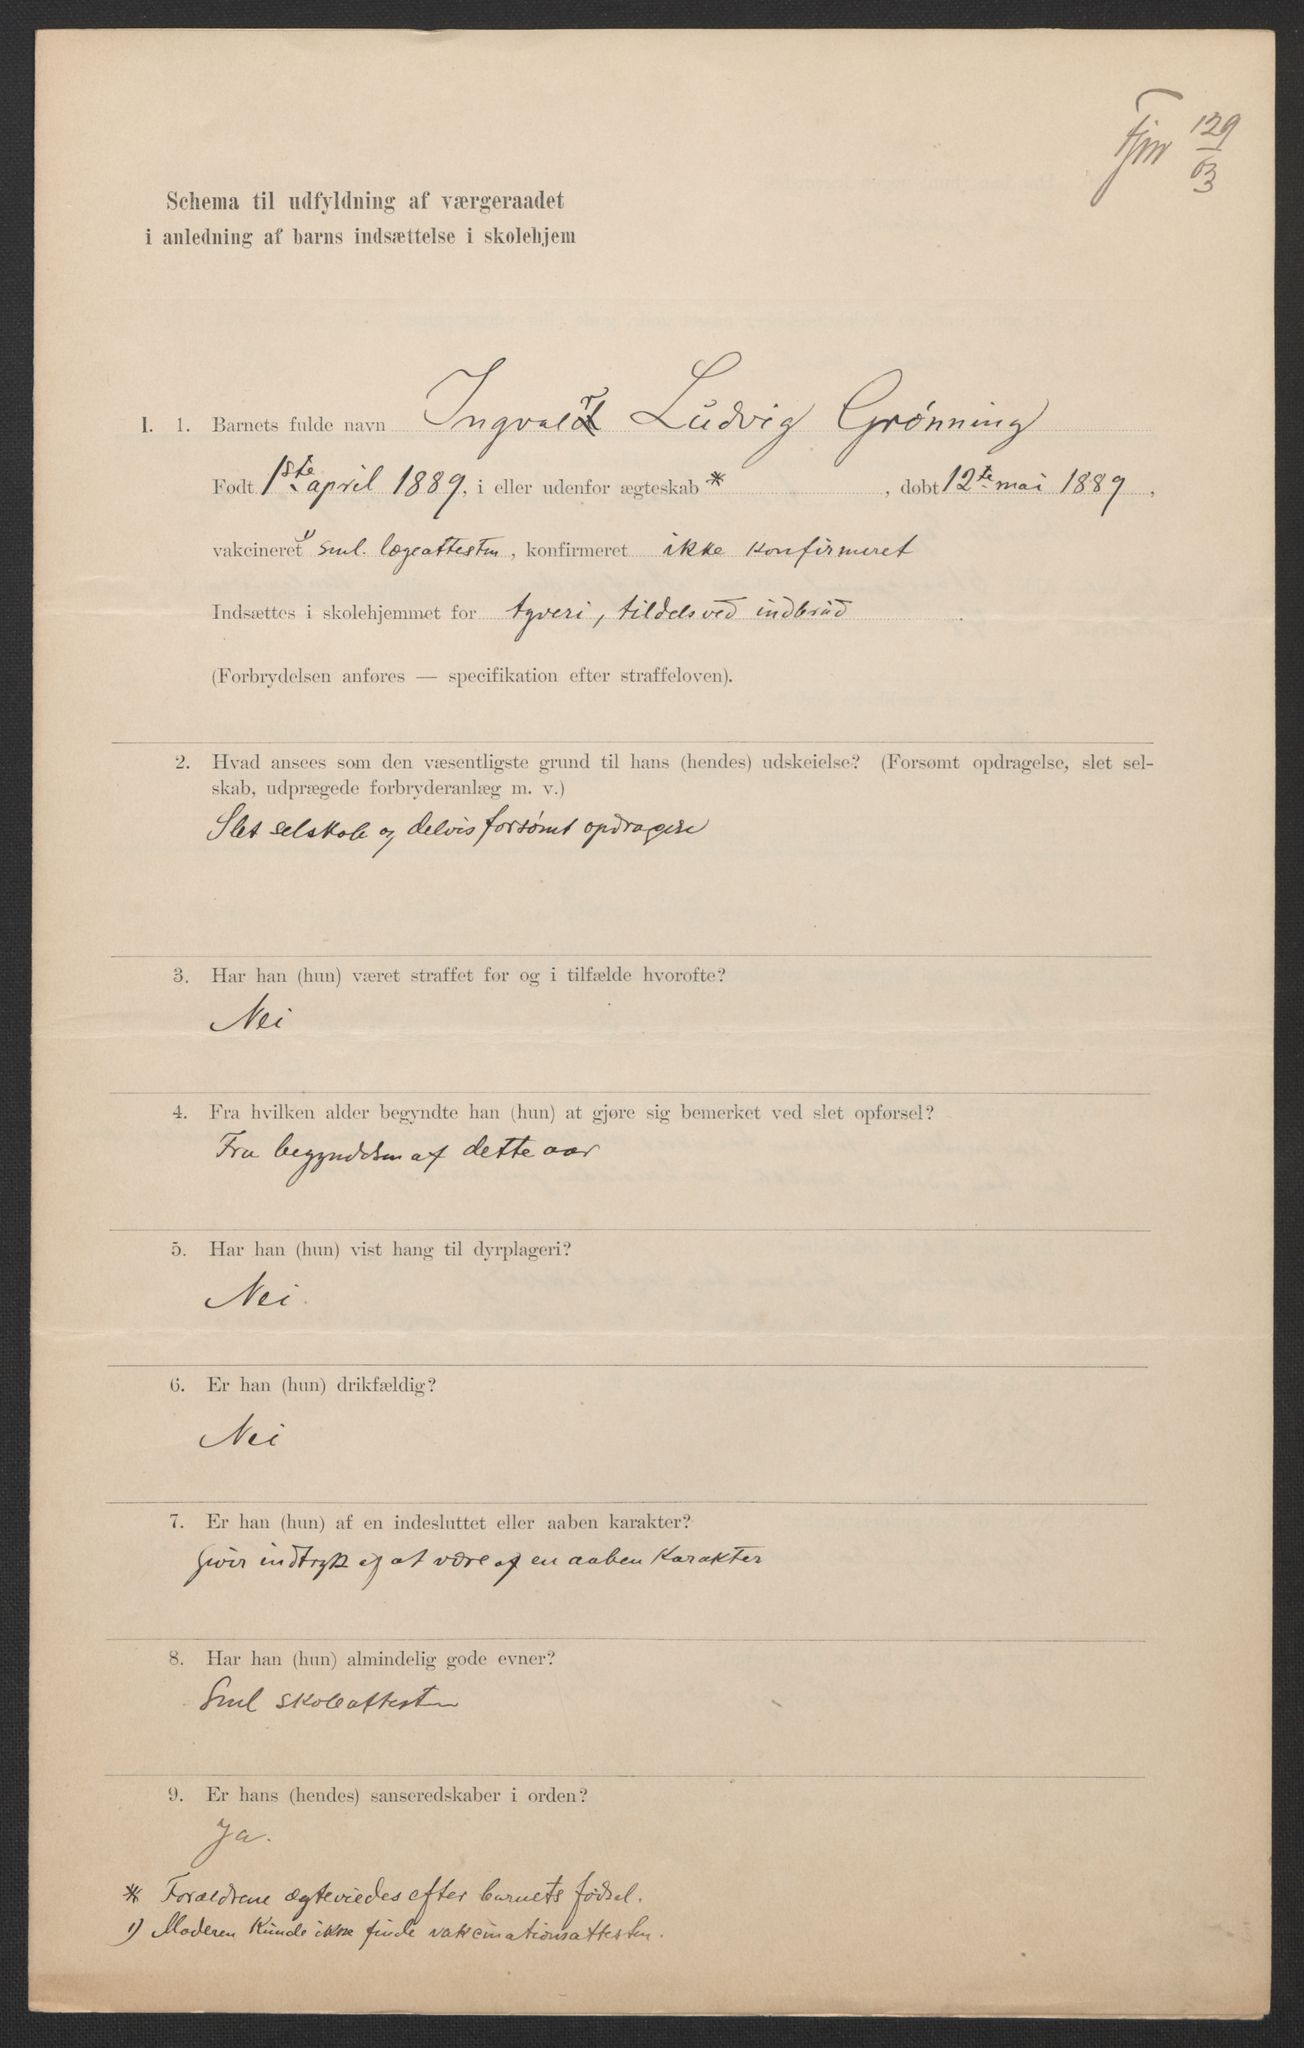 Fjm 129/03
Schema til udfyldning af værgeraadet
i anledning af barns indsættelse i skolehjem
I. 1. Barnets fulde navn Ingvald Ludvig Grønning
Født 1ste april 1889, i eller udenfor ægteskab * , døbt 12te mai 1889,
vakcineret 1) sml. lægeattesten, konfirmeret ikke konfirmeret
Indsættes i skolehjemmet for tyveri, tildels ved indbrud
(Forbrydelsen anføres — specifikation efter straffeloven).
2. Hvad ansees som den væsentligste grund til hans (hendes) udskeielse? (Forsømt opdragelse, slet sel-
skab, udprægede forbryderanlæg m. v.)
Slet selskab og delvis forsømt opdragelse
3. Har han (hun) været straffet før og i tilfælde hvorofte?
Nei
4. Fra hvilken alder begyndte han (hun) at gjøre sig bemerket ved slet opførsel?
Fra begyndelsen af dette aar
5. Har han (hun) vist hang til dyrplageri?
Nei.
6. Er han (hun) drikfældig?
Nei
7. Er han (hun) af en indesluttet eller aaben karakter?
Giver indtryk af at være af en aaben karakter
8. Har han (hun) almindelig gode evner?
Sml skoleattesten
9. Er hans (hendes) sanseredskaber i orden?
Ja.
* Forældrene ægteviedes efter barnets fødsel.
1) Moderen kunde ikke finde vakcinationsattesten.